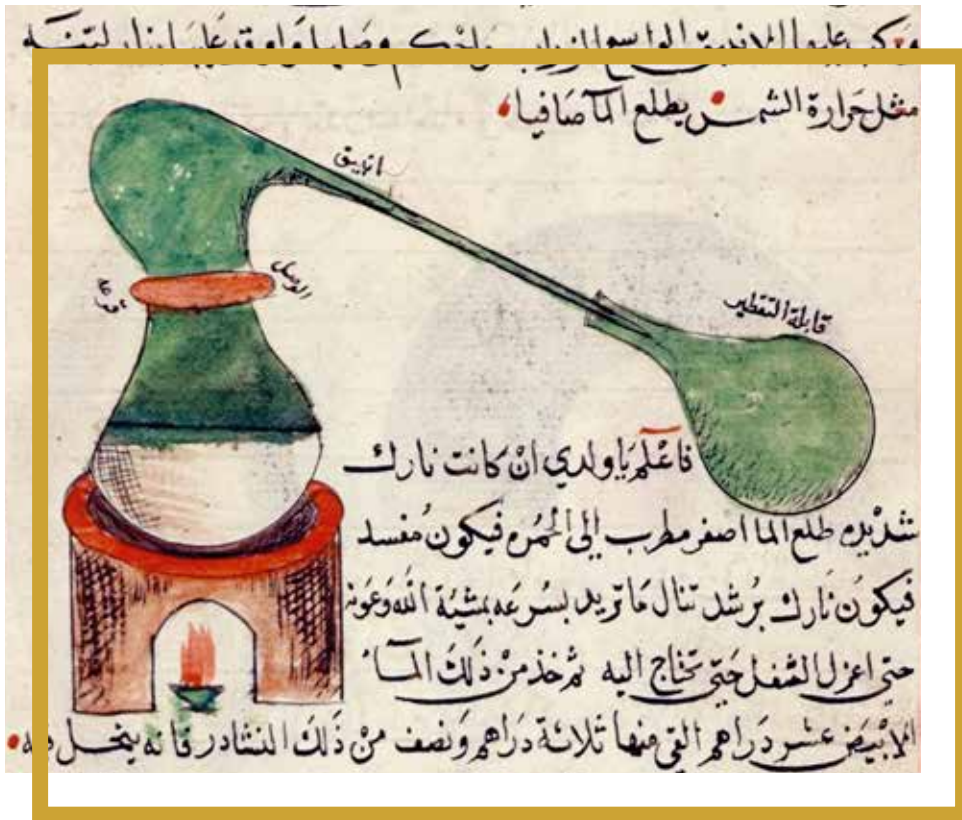 وركب عليها الانبيق الواسع
مثل حرارة الشمس يطلع الماء صافيا
انبيق
الوصل
قابلة التقطير
فاعْلم يا ولدي انْ كانت نارك
شديده طلع الما اصفر مطرب إلى الحمره فيكون مُفسد
فيكون نارك برُشد تنال مَا تريد بسرعه بمشيّة الله وعَونه
حتى اعزل الثفل حَتى تحتاج اليه ثم خذ منْ ذلكَ المآء
الابْيَض عشر دَراهم القي منها ثلاثة دَراهم وَنصف منْ ذَلكَ النشادر فانه ينحل فيه